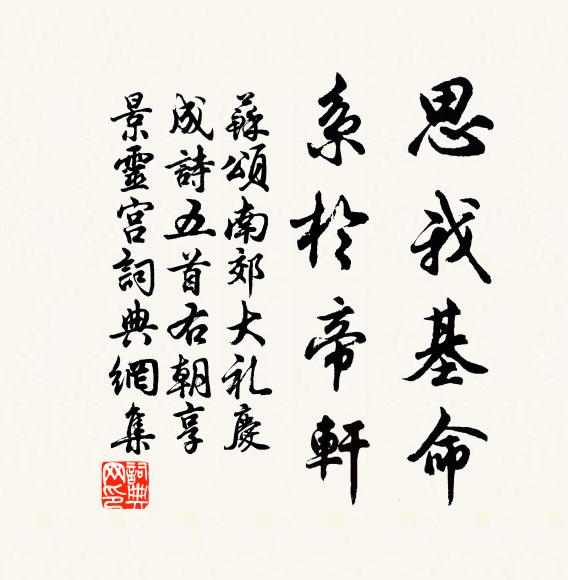 思我基命
系於帝軒
蘇頌南郊大礼慶
成詩五首右朝享
景靈宮詞典網集
詞典网印